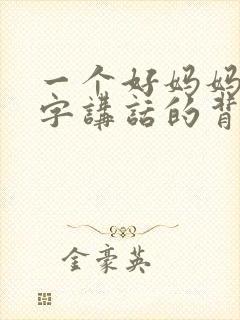 一个好妈妈
字講話的背
金豪英